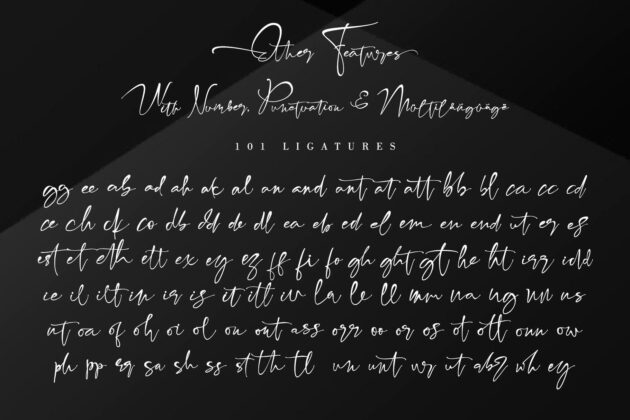 Other Features
With Number, Punctuation & Multilåñgúâgê
101 LIGATURES
gg ee ab ad ah ak al an and ant at att bb bl ca cc cd
ce ch ck co db dd de dl ea eb ed el em en end ut er es
est et eth ett ex ey ez ff fi fo gh ght gt he ht irr
ie il ilt in ir is it itt iv la le ll mm na ng nn ns
nt oa of oh oi ol on ont ass orr oo or os ot ott oun ow
ph pp rq sa sh ss st th tl un unt ur ut wh ey